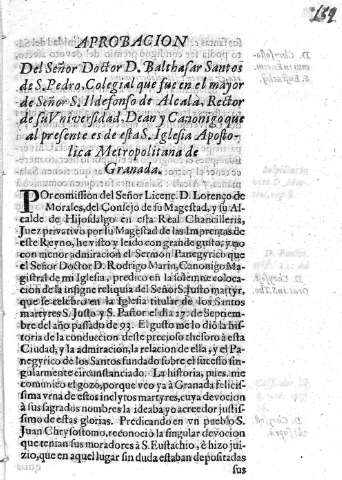 159
APROBACION
Del Señor Doctor D. Balthasar Santos
de S. Pedro, Colegial que fue en el mayor
de Señor S. Ildefonso de Alcala, Rector
de su Vniversidad, Dean y Canonigo que
al presente es de esta S. Iglesia Aposto-
lica Metropolitana de
Granada.
POr comission del Señor Licenc. D. Lorenço de
Morales, del Consejo de su Magestad, y su Al-
calde de Hijosdalgo en esta Real Chancilleria,
Juez privativo por su Magestad de las Imprentas de
este Reyno, he visto y leido con grande gusto, y no
con menor admiracion el Sermon Panegyrico que
el Señor Doctor D. Rodrigo Marin, Canonigo Ma-
gistral de mi Iglesia, predicò en la solemne coloca-
cion de la insigne reliquia del Señor S. Justo martyr,
que se celebrò en la Iglesia titular de los Santos
martyres S. Justo y S. Pastor el dia 27. de Septiem-
bre del año passado de 93. El gusto me lo diò la his-
toria de la conduccion deste precioso thesoro à esta
Ciudad, y la admiracion, la relacion de ella, y el Pa-
negyrico de los Santos fundado sobre el sucesso sin-
gularmente circunstanciado. La historia, pues, me
comunicò el gozo, porque veo ya à Granada felicis-
sima vrna de estos inclytos martyres, cuya devocion
à sus sagrados nombres la ideaba yo acreedor justis-
simo de estas glorias. Predicando en vn pueblo S.
Juan Chrysostomo, reconociò la singular devocion
que tenian sus moradores à S. Eustachio, è hizo jui-
zio, que en aquel lugar sin duda estaban depositadas
sus